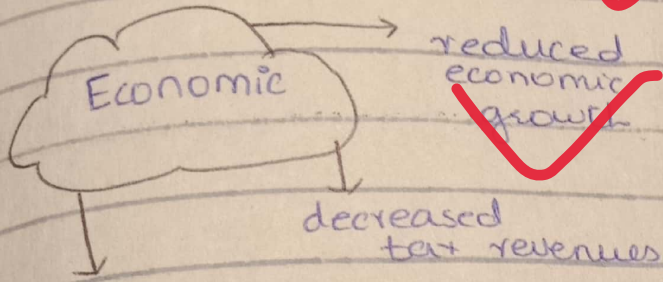 Economic
reduced
economic
growth
decreased
tax revenues